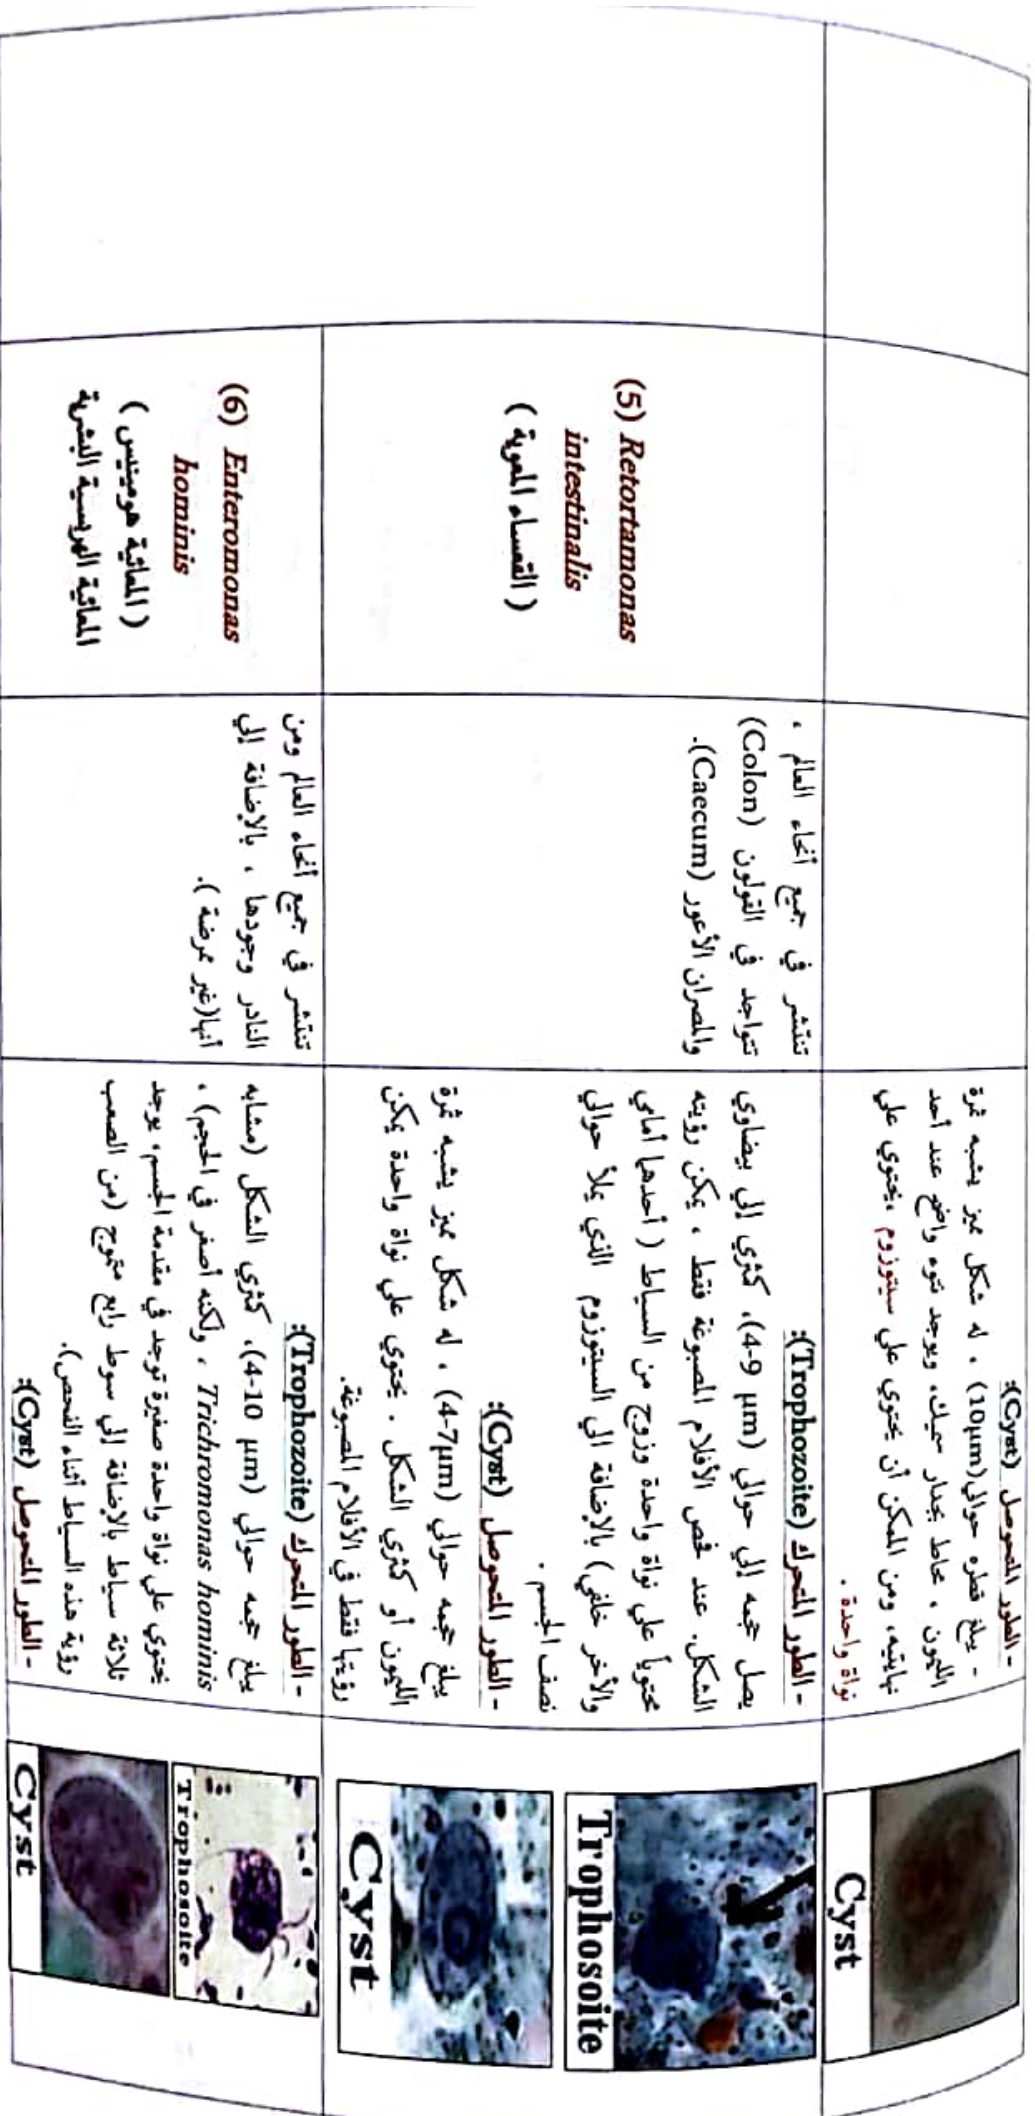 - الطور المتحوصل (Cyst):
- يبلغ قطره حوالي (10µm) ، له شكل مميز يشبه ثمرة
الليمون ، محاط بجدار سميك، ويوجد نتوء واضح عند أحد
نهايتيه، ومن الممكن أن يحتوي على سيتوزوم ،يحتوي على
نواة واحدة .
Cyst
(5) Retortamonas
intestinalis
( القعساء المعوية )
تنتشر في جميع أنحاء العالم ،
تتواجد في القولون (Colon)
والمصران الأعور (Caecum).
- الطور المتحرك (Trophozoite):
يصل حجمه إلى حوالي (4-9 µm)، كمثري إلى بيضاوي
الشكل. عند فحص الأفلام المصبوغة فقط ، يمكن رؤيته
محتوياً على نواة واحدة وزوج من السياط ( أحدهما أمامي
والأخر خلفي) بالإضافة الي السيتوزوم الذي يملأ حوالي
نصف الجسم .
- الطور المتحوصل (Cyst):
يبلغ حجمه حوالي (4-7µm) ، له شكل مميز يشبه ثمرة
الليمون أو كمثري الشكل . يحتوي علي نواة واحدة يمكن
رؤيتها فقط في الأفلام المصبوغة.
Trophosoite
Cyst
(6) Enteromonas
hominis
( المعائية هومينيس )
المعائية الهربسية البشرية
تنتشر في جميع أنحاء العالم ومن
النادر وجودها ، بالإضافة إلي
أنها(غير ممرضة ).
- الطور المتحرك (Trophozoite):
يبلغ حجمه حوالي (4-10 µm)، كمثري الشكل (مشابه
Trichromonas hominis ، ولكنه أصغر في الحجم) ،
يحتوي علي نواة واحدة صغيرة توجد في مقدمة الجسم، يوجد
ثلاثة سياط بالإضافة إلي سوط رابع متموج (من الصعب
رؤية هذه السياط أثناء الفحص).
- الطور المتحوصل (Cyst):
Trophosoite
Cyst